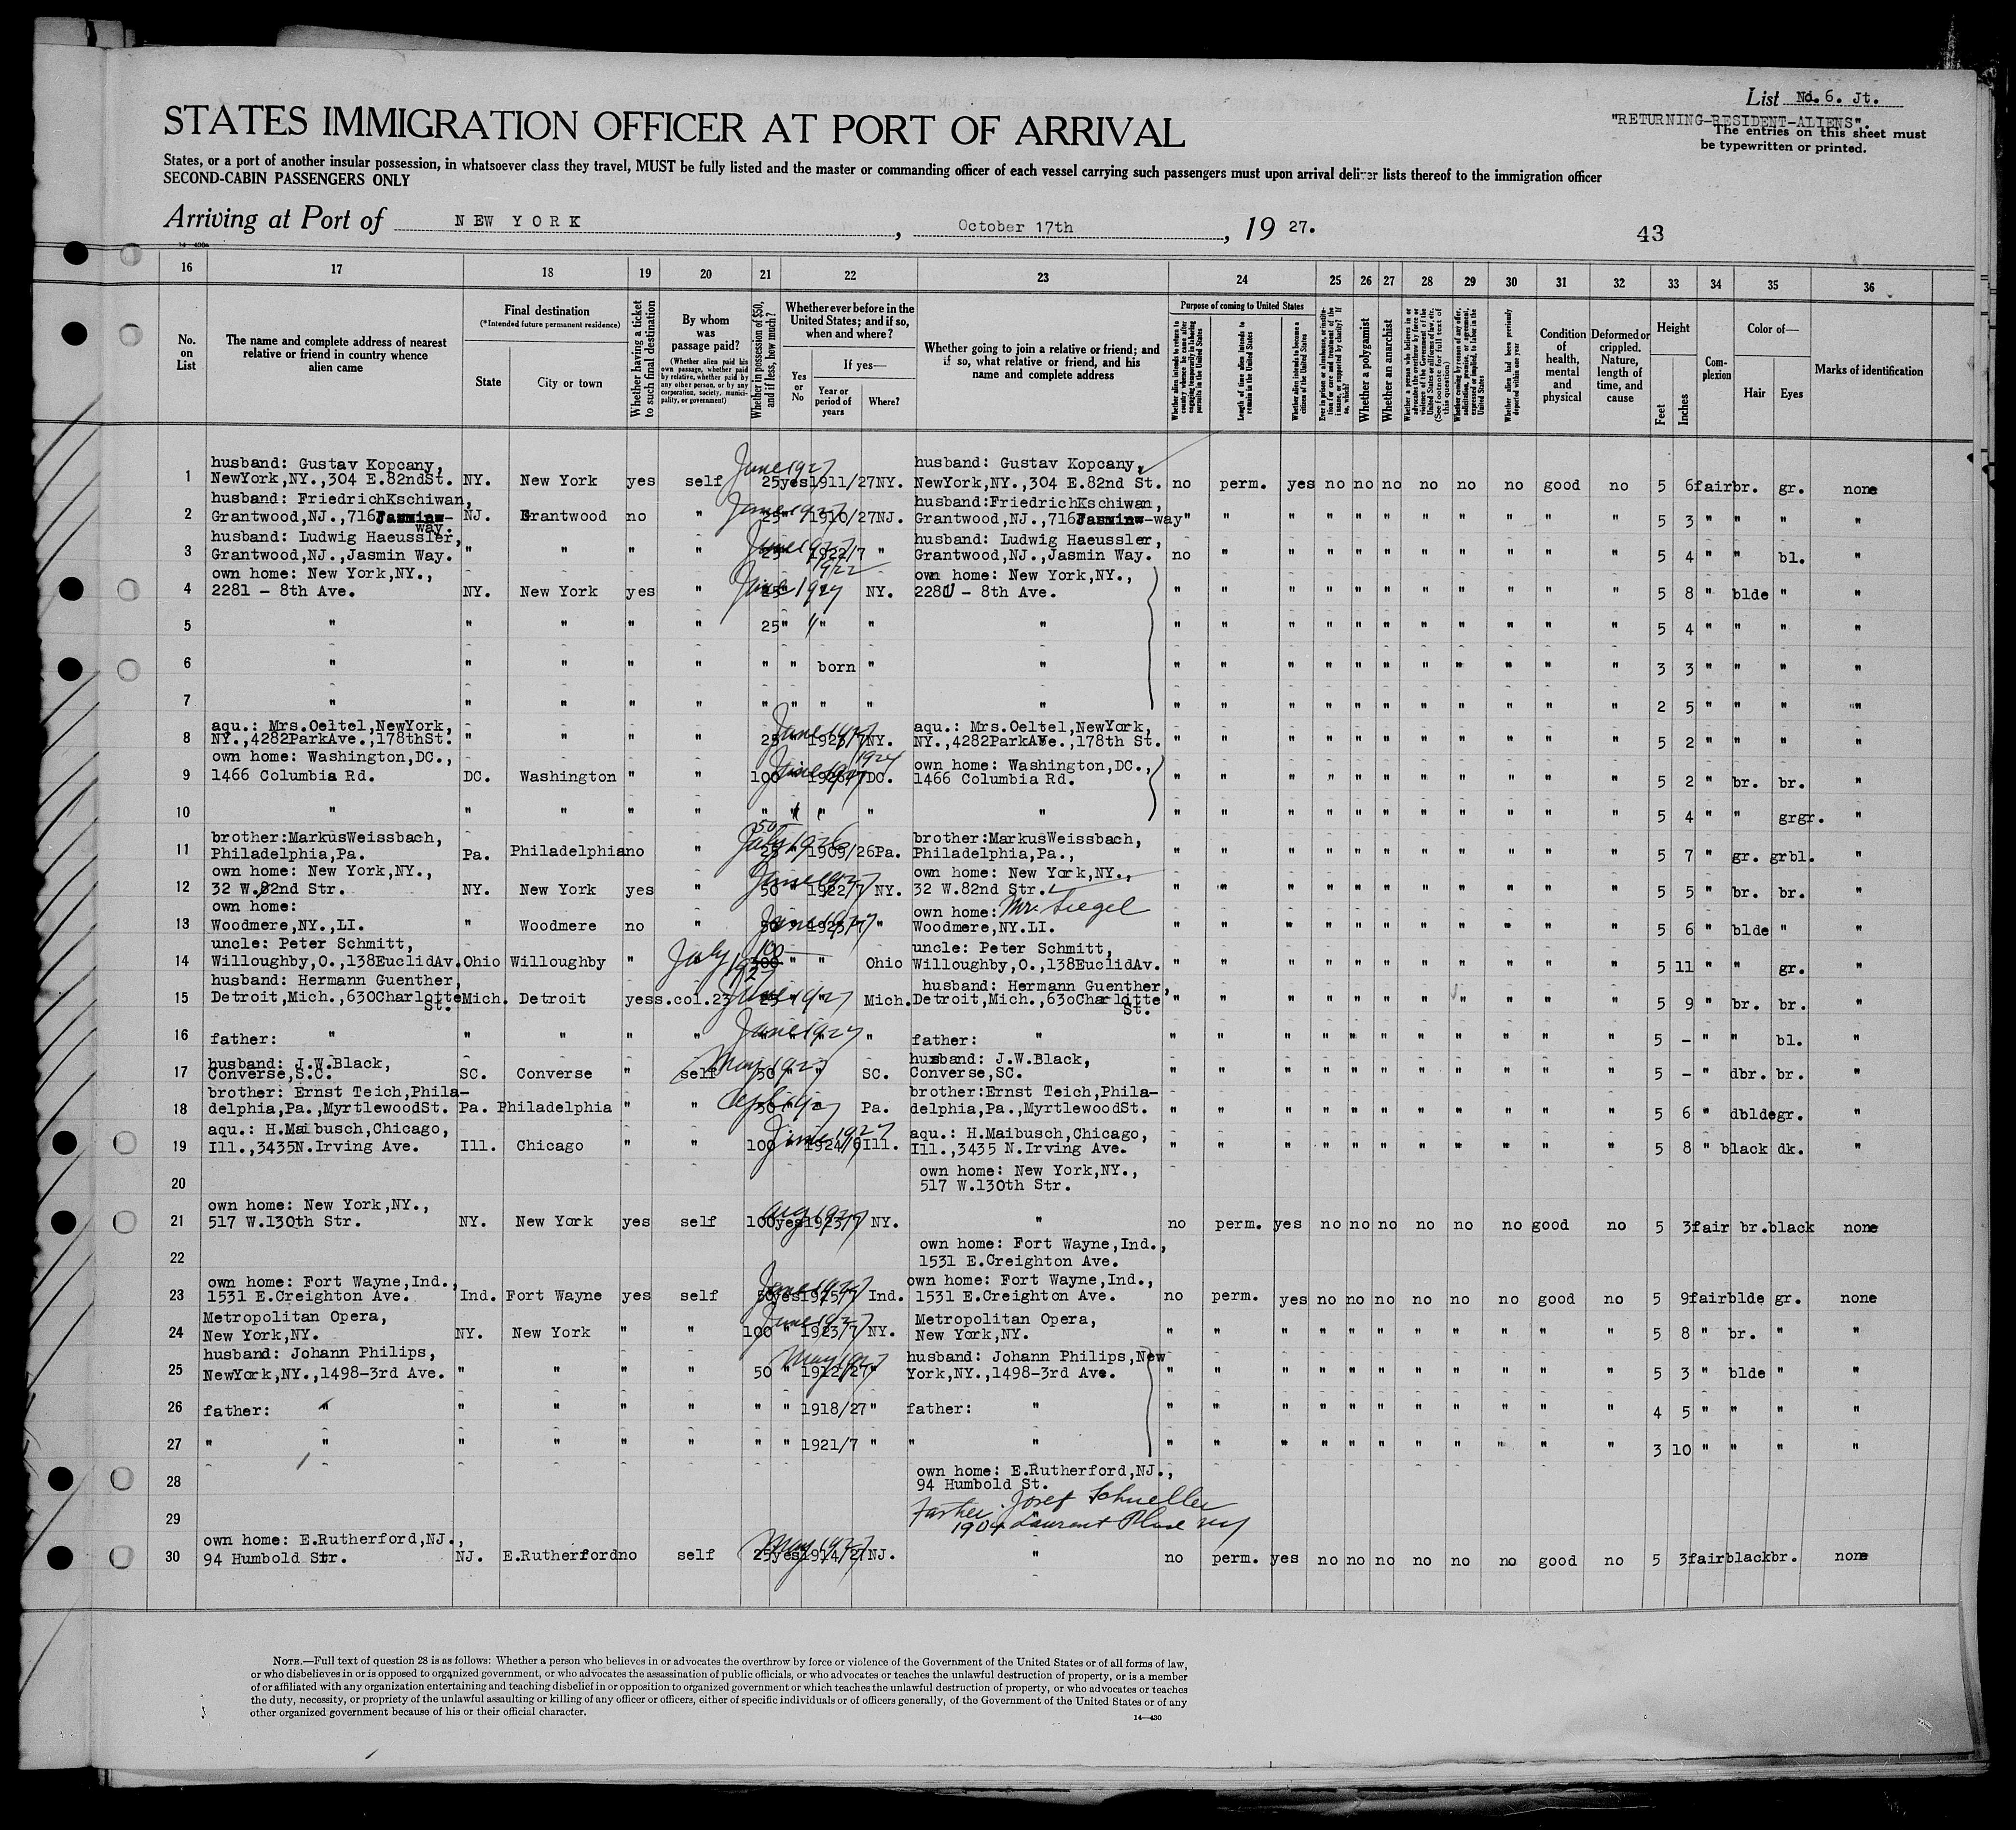 List No. 6. Jt.
"RETURNING-RESIDENT-ALIENS".
The entries on this sheet must
be typewritten or printed.
STATES IMMIGRATION OFFICER AT PORT OF ARRIVAL
States, or a port of another insular possession, in whatsoever class they travel, MUST be fully listed and the master or commanding officer of each vessel carrying such passengers must upon arrival deliver lists thereof to the immigration officer
SECOND-CABIN PASSENGERS ONLY
Arriving at Port of NEW YORK, October 17th, 19 27.
43
16 17 18 19 20 21 22 23 24 25 26 27 28 29 30 31 32 33 34 35 36
No. on List
The name and complete address of nearest relative or friend in country whence alien came
Final destination
(*Intended future permanent residence)
State
City or town
Whether having a ticket to such final destination
By whom was passage paid?
(Whether alien paid his own passage, whether paid by relative, whether paid by any other person, or by any corporation, society, municipality, or government)
Whether in possession of $50, and if less, how much?
Whether ever before in the United States; and if so, when and where?
Yes or No
If yes—
Year or period of years
Where?
Whether going to join a relative or friend; and if so, what relative or friend, and his name and complete address
Purpose of coming to United States
Whether alien intends to return to country whence he came after engaging temporarily in laboring pursuits in the United States
Length of time alien intends to remain in the United States
Whether alien intends to become a citizen of the United States
Whether a polygamist
Whether an anarchist
Whether alien had been previously deported within one year
Condition of health, mental and physical
Deformed or crippled. Nature, length of time, and cause
Height
Feet
Inches
Complexion
Color of—
Hair
Eyes
Marks of identification
1 husband: Gustav Kopcany, NewYork,NY.,304 E.82ndSt. NY. New York yes self 25 yes 1911/27 NY. June 1927 husband: Gustav Kopcany, NewYork,NY.,304 E.82nd St. no perm. yes no no no no no no good no 5 6 fair br. gr. none
2 husband: FriedrichKschiwan, Grantwood,NJ.,716 Jasmin-way. NJ. Grantwood no " 25 " 1910/27 NJ. June 1927 husband:FriedrichKschiwan, Grantwood,NJ.,716 Jasmin-way " " " " " " " " " " " 5 3 " " " "
3 husband: Ludwig Haeussler, Grantwood,NJ.,Jasmin Way. " " " " 25 " 1922/7 " June 1927 husband: Ludwig Haeussler, Grantwood,NJ.,Jasmin Way. no " " " " " " " " " " 5 4 " " bl. "
4 own home: New York,NY., 2281 - 8th Ave. NY. New York yes " 25 " 1922 June 1927 NY. own home: New York,NY., 2281 - 8th Ave. " " " " " " " " " " " 5 8 " blde " "
5 " " " " " 25 " " " " " " " " " " " " " " " " 5 4 " " " "
6 " " " " " " " born " " " " " " " " " " " " " " 3 3 " " " "
7 " " " " " " " " " " " " " " " " " " " " " " 2 5 " " " "
8 aqu.: Mrs.Oeltel,NewYork, NY.,4282ParkAve.,178thSt. " " " " 25 " 1923/7 NY. June 1927 aqu.: Mrs.Oeltel,NewYork, NY.,4282ParkAve.,178th St. " " " " " " " " " " " 5 2 " " " "
9 own home: Washington,DC., 1466 Columbia Rd. DC. Washington " " 100 " 1926/7 DC. June 1927 1924 own home: Washington,DC., 1466 Columbia Rd. " " " " " " " " " " " 5 2 " br. br. "
10 " " " " " " " " " " " " " " " " " " " " " " 5 4 " " grgr. "
11 brother:MarkusWeissbach, Philadelphia,Pa. Pa. Philadelphia no " 25 50 " 1909/26 Pa. July 1926 brother:MarkusWeissbach, Philadelphia,Pa., " " " " " " " " " " " 5 7 " gr. grbl. "
12 own home: New York,NY., 32 W.82nd Str. NY. New York yes " 50 " 1922/7 NY. June 1927 own home: New York,NY., 32 W.82nd Str. " " " " " " " " " " " 5 5 " br. br. "
13 own home: Woodmere,NY.,LI. " Woodmere no " 50 " 1923/7 " June 1927 own home: Mr. Siegel Woodmere,NY.LI. " " " " " " " " " " " 5 6 " blde " "
14 uncle: Peter Schmitt, Willoughby,O.,138EuclidAv. Ohio Willoughby " July 1927 100 " " Ohio uncle: Peter Schmitt, Willoughby,O.,138EuclidAv. " " " " " " " " " " " 5 11 " " gr. "
15 husband: Hermann Guenther, Detroit,Mich.,630Charlotte St. Mich. Detroit yes s.col.23 25 " " June 1927 Mich. husband: Hermann Guenther, Detroit,Mich.,63oCharlotte St. " " " " " " " " " " " 5 9 " br. br. "
16 father: " " " " " " " " June 1927 " father: " " " " " " " " " " " " 5 - " " bl. "
17 husband: J.W.Black, Converse,S.C. SC. Converse " self 50 " " May 1927 SC. husband: J.W.Black, Converse,SC. " " " " " " " " " " " 5 - " dbr. br. "
18 brother: Ernst Teich,Philadelphia,Pa.,MyrtlewoodSt. Pa. Philadelphia " " 50 " " Pa. brother:Ernst Teich,Philadelphia,Pa.,MyrtlewoodSt. " " " " " " " " " " " 5 6 " dblde gr. "
19 aqu.: H.Maibusch,Chicago, Ill.,3435N.Irving Ave. Ill. Chicago " " 100 " 1924/6 Ill. June 1927 aqu.: H.Maibusch,Chicago, Ill.,3435 N.Irving Ave. " " " " " " " " " " " 5 8 " black dk. "
20 own home: New York,NY., 517 W.130th Str.
21 own home: New York,NY., 517 W.130th Str. NY. New York yes self 100 yes 1923/7 NY. Aug 1927 " no perm. yes no no no no no no good no 5 3 fair br. black none
22 own home: Fort Wayne,Ind., 1531 E.Creighton Ave.
23 own home: Fort Wayne,Ind., 1531 E.Creighton Ave. Ind. Fort Wayne yes self 50 yes 1925/7 Ind. June 1927 own home: Fort Wayne,Ind., 1531 E.Creighton Ave. no perm. yes no no no no no no good no 5 9 fair blde gr. none
24 Metropolitan Opera, New York,NY. NY. New York " " 100 " 1923/7 NY. June 1927 Metropolitan Opera, New York,NY. " " " " " " " " " " " 5 8 " br. " "
25 husband: Johann Philips, NewYork,NY.,1498-3rd Ave. " " " " 50 " 1912/27 " May 1927 husband: Johann Philips,New York,NY.,1498-3rd Ave. " " " " " " " " " " " 5 3 " blde " "
26 father: " " " " " " " 1918/27 " father: " " " " " " " " " " " " 4 5 " " " "
27 " " " " " " " " 1921/7 " " " " " " " " " " " " " " " 3 10 " " " "
28 own home: E.Rutherford,NJ., 94 Humbold St.
29 Josef Schueller 1904 NY
30 own home: E.Rutherford,NJ., 94 Humbold Str. NJ. E.Rutherford no self 25 yes 1914/27 NJ. May 1927 " no perm. yes no no no no no no good no 5 3 fair black br. none
NOTE.—Full text of question 28 is as follows: Whether a person who believes in or advocates the overthrow by force or violence of the Government of the United States or of all forms of law,
or who disbelieves in or is opposed to organized government, or who advocates the assassination of public officials, or who advocates or teaches the unlawful destruction of property, or is a member
of or affiliated with any organization entertaining and teaching disbelief in or opposition to organized government or which teaches the unlawful destruction of property, or who advocates or teaches
the duty, necessity, or propriety of the unlawful assaulting or killing of any officer or officers, either of specific individuals or of officers generally, of the Government of the United States or of any
other organized government because of his or their official character.
14—430